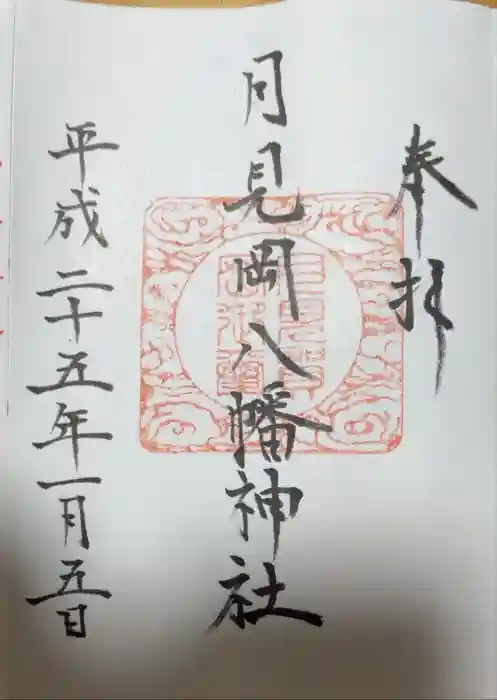 奉拝
月見岡八幡神社
平成二十五年一月五日